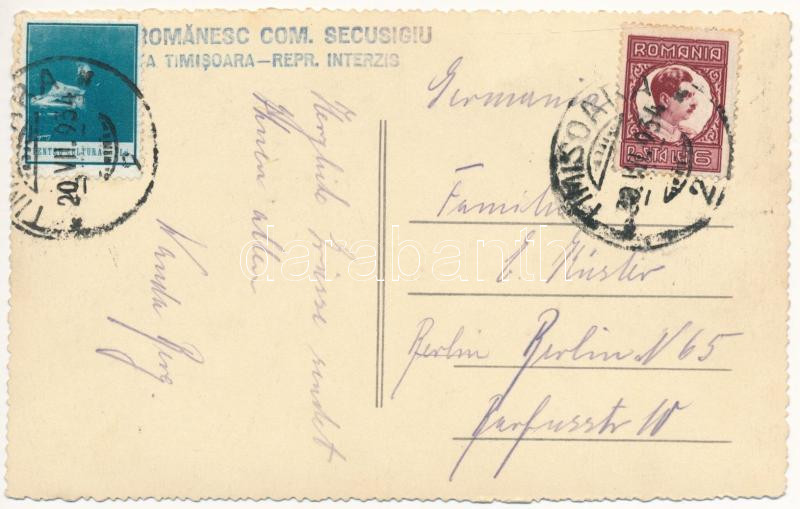 ROMÂNESC COM. SECUSIGIU
TIMIȘOARA—REPR. INTERZIS
Herzliche Grüsse sendet
Ihnen allen
Wanda Berg.
ROMANIA
POSTA LEI 6
TIMIȘOARA
20 VII. 934
2
TIMIȘOARA
20 VII. 934
PENTRU CULTURA
Germania
Familie
E. Küster
Berlin Berlin N 65
10
darabanth